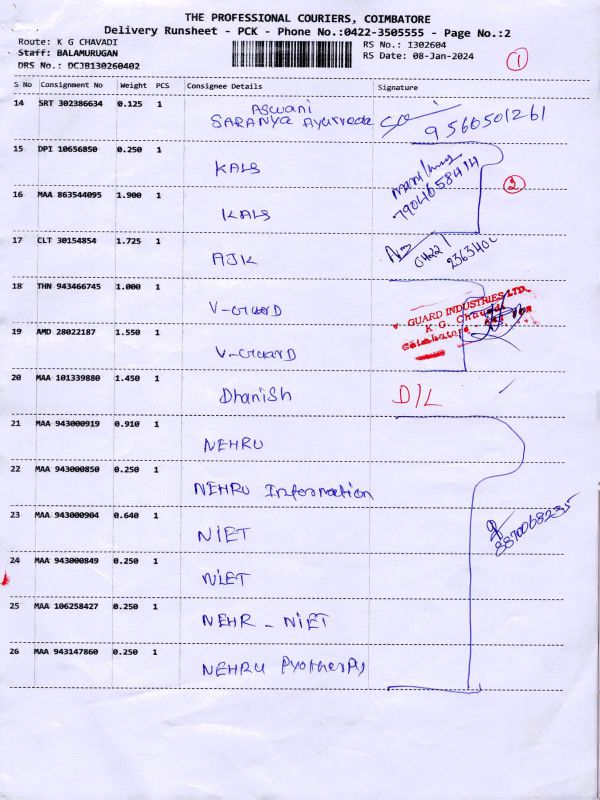 THE PROFESSIONAL COURIERS, COIMBATORE
Delivery Runsheet - PCK - Phone No.:0422-3505555 - Page No.:2
Route: K G CHAVADI
RS No.: 1302604
Staff: BALAMURUGAN
RS Date: 08-Jan-2024
DRS No.: DCJB130260402
1
S No Consignment No Weight PCS Consignee Details Signature
14 SRT 302386634 0.125 1 Aswani
SARANYA Ayurveda 9560501261
15 DPI 10656850 0.250 1 KALS
7904658414
2
16 MAA 863544095 1.900 1 KALS
17 CLT 30154854 1.725 1 AJK
04221
18 THN 943466745 1.000 1 V-GUARD
V-GUARD INDUSTRIES LTD.
K G Chavadi
Coimbatore
19 AMD 28022187 1.550 1 V-GUARD
20 MAA 101339880 1.450 1 Dhanish D/L
21 MAA 943000919 0.910 1 NEHRU
22 MAA 943000850 0.250 1 NEHRU Information
23 MAA 943000904 0.640 1 NIET
8870068235
24 MAA 943000849 0.250 1 NIET
25 MAA 106258427 0.250 1 NEHR - NIET
26 MAA 943147860 0.250 1 NEHRU Pyotherpy